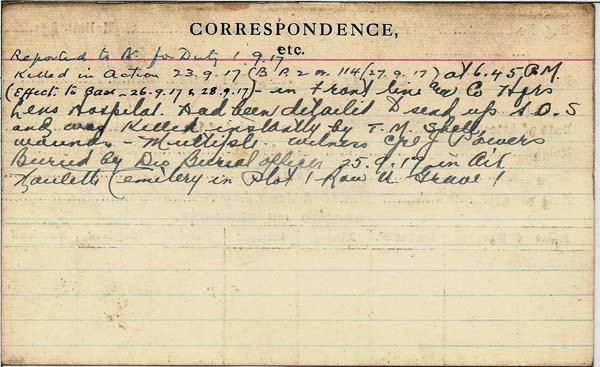 CORRESPONDENCE,
etc.
Reported to for Duty 1.9.17
Killed in Action 23.9.17 (B 2 114/27.9.17) at 6.45 P.M.
(Effects to Base - 26.9.17 & 28.9.17) - in Front line Co Hqrs
Lens Hospital. Had been detailed to send up S.O.S
and was Killed instantly by T.M. Shell,
wounds - Multiple. witness Cpl J Powers
Buried by Div Burial Officer 25.9.17 in Aix
Noulette Cemetery in Plot 1 Row U. Grave 1